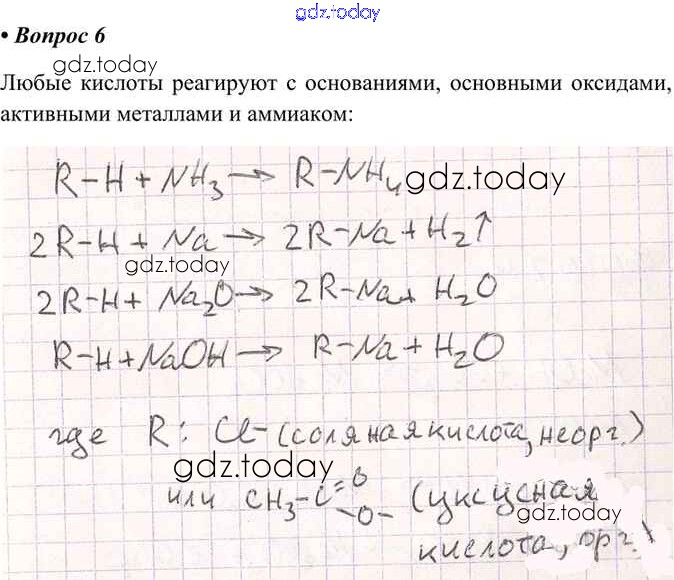 gdz.today
• Вопрос 6
gdz.today
Любые кислоты реагируют с основаниями, основными оксидами,
активными металлами и аммиаком:
R-H + NH₃ → R-NH₄ gdz.today
2R-H + Na → 2R-Na + H₂↑
gdz.today
2R-H + Na₂O → 2R-Na + H₂O
R-H + NaOH → R-Na + H₂O
где R: Cl- (соляная кислота, неорг.)
gdz.today
или CH₃-C=O -O- (уксусная
gdz.today
кислота, орг.)